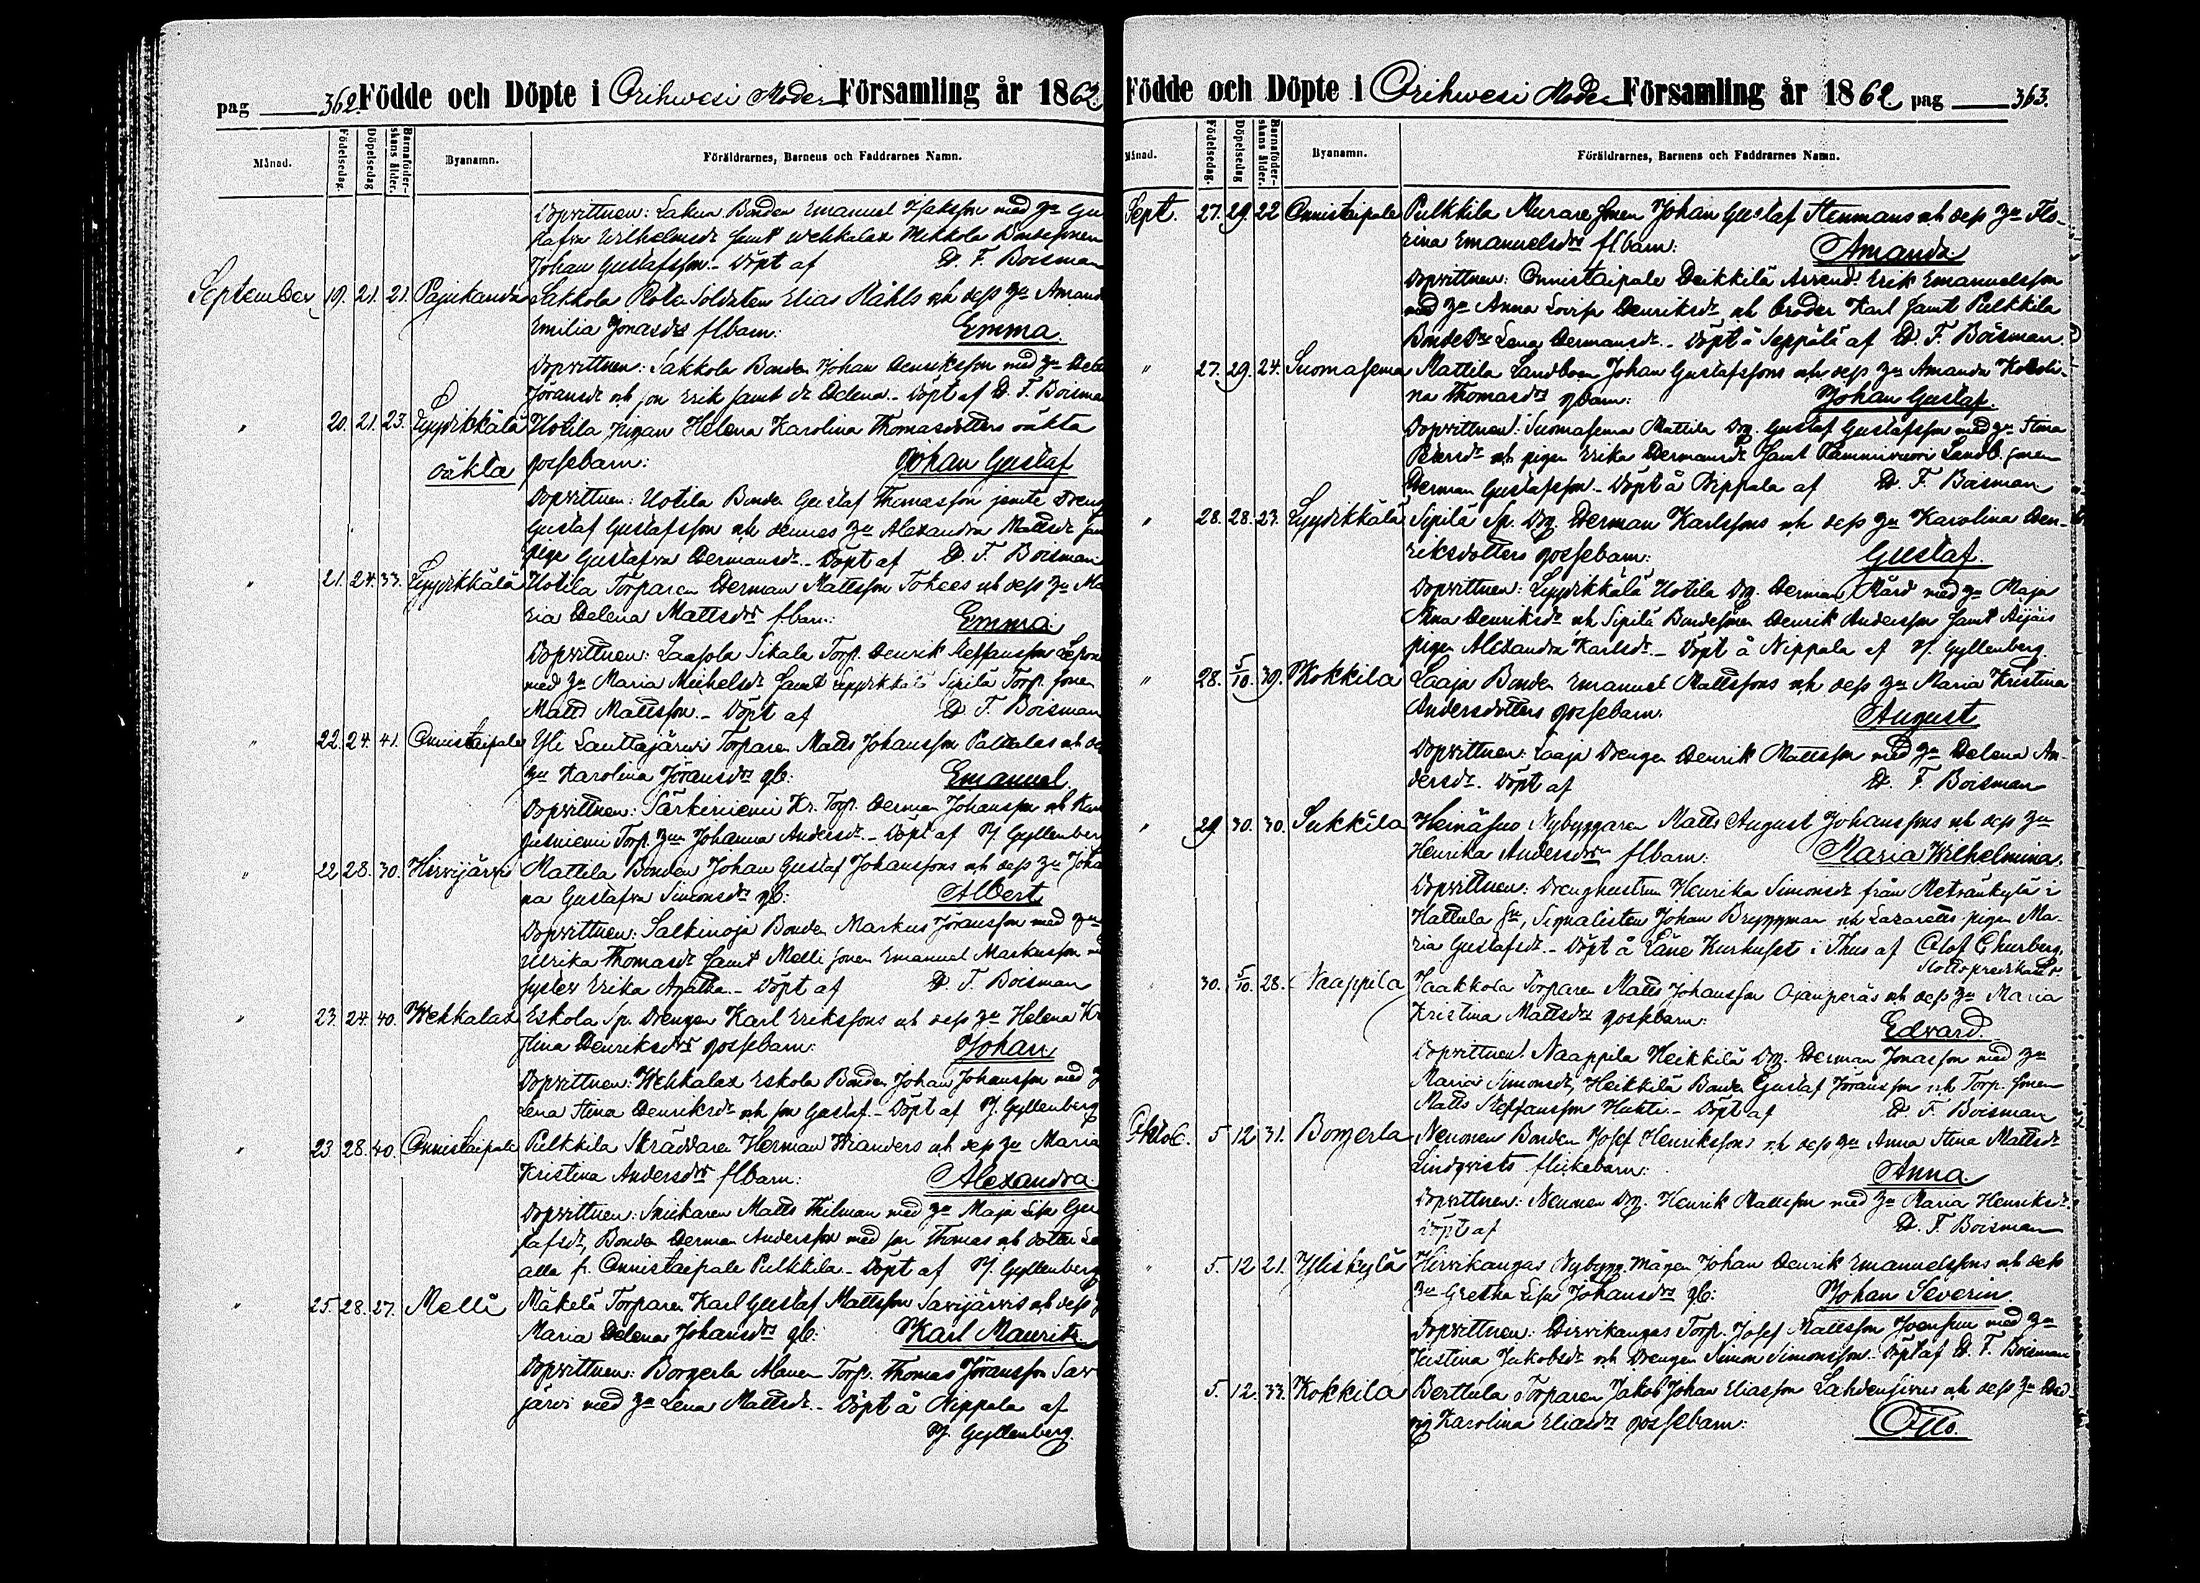 pag 362. Födde och Döpte i Orihwesi Moder Församling år 1862
Månad. Födelsedag. Döpelsedag Barnaföderskans ålder. Byanamn. Föräldrarnes, Barnens och Faddrarnes Namn.
Dopvittnen: Bonden Emanuel med hu Gu
stafva Wilhelmsdr samt Wehkalax Mikkola Bondesonen
Johan Gustafsson. Döpt af D. F. Boisman
September 19. 21. 21. Pajukanda Sakkola Rote Soldaten Elias Ståhls och dess hu Amanda
Emilia Jonasdrs flbarn: Emma.
Dopvittnen: Sakkola Bonden Johan Henriksson med hu Hele
Göransdr och son Erik samt dr Helena. Döpt af D. F. Boisman
" 20. 21. 23. Lyydikkälä Uotila pigan Helena Karolina Thomasdotters oäkta
oäkta gossebarn: Johan Gustaf
Dopvittnen: Uotila Bonden Gustaf Thomasson jemte Dreng
Gustaf Gustafsson och dennes hu Alexandra Mattsdr samt
pigan Gustafva Hermansdr. Döpt af D. F. Boisman
" 21. 24. 33. Lyydikkälä Uotila Torparen Herman Mattsson och dess hu Ma
ria Helena Mattsdrs flbarn: Emma.
Dopvittnen: Laasola Sikala Torp. Henrik Steffansson
med hu Maria Michelsdr samt Lyydikkälä Sipilä Torp. sonen
Matts Mattsson. Döpt af D. F. Boisman
" 22. 24. 41. Onnistaipale Yli Lauttajärvi Torparen Matts Johansson och de
hu Karolina Göransdrs gb: Emanuel
Dopvittnen: Särkiniemi Kr. Torp. Herman Johansson och
Torp. hun Johanna Andersdr. Döpt af Hj. Gyllenberg
" 22 28. 30. Hirvijärvi Mattila Bonden Johan Gustaf Johanssons och dess hu Joha
na Gustafva Simonsdrs gb: Albert
Dopvittnen: Salkinoja Bonden Markus Göransson med hu
Ulrika Thomasdr samt Melli sonen Emanuel Markusson
syster Erika Agatha. Döpt af D. F. Boisman
" 23. 24. 40. Wehkalax Eskola Sp. Drengen Karl Erikssons och dess hu Helena Kr
stina Henriksdrs gossebarn: Johan
Dopvittnen: Wehkalax Eskola Bonden Johan Johansson med
Lena Stina Henriksdr och son Gustaf. Döpt af Hj. Gyllenberg
" 23 28. 40. Onnistaipale Pulkkila Skräddaren Herman Wianders och dess hu Maria
Kristina Andersdrs flbarn: Alexandra.
Dopvittnen: Snickaren Matts Thilman med hu Maja Lisa Gu
stafsdr, Bonden Herman Andersson med son Thomas och dotter
alla fr. Onnistaipale Pulkkila. Döpt af Hj. Gyllenberg
" 25. 28. 27. Melli Mäkelä Torparen Karl Gustaf Mattsson Savijärvis och dess
Maria Helena Johansdrs gb: Karl Mauritz.
Dopvittnen: Borgerla Torp. Thomas Göransson Savi
järvi med hu Lena Mattsdr. Döpt å Nippala af
Hj. Gyllenberg.
Födde och Döpte i Orihwesi Moder Församling år 1862 pag 363.
Månad. Födelsedag. Döpelsedag Barnaföderskans ålder. Byanamn. Föräldrarnes, Barnens och Faddrarnes Namn.
Sept. 27. 29. 22 Onnistaipale Pulkkila Murare sonen Johan Gustaf Stenmans och dess hu Flo-
rina Emanuelsdrs flbarn: Amanda
Dopvittnen: Onnistaipale Heikkilä Arrend. Erik Emanuelsson
med hu Anna Lovisa Henriksdr och broder Karl samt Pulkkila
Lena Hermansdr. Döpt å Seppälä af D. F. Boisman.
" 27. 29. 24. Suomasema Mattila Landbon Johan Gustafssons och dess hu Amanda Karoli-
na Thomasdrs gbarn: Johan Gustaf.
Dopvittnen: Suomasema Mattila Drg. Gustaf Gustafsson med hu Stina
och pigan Erika Hermansdr samt Landb. sonen
Herman Gustafsson. Döpt å Nippala af D. F. Boisman
" 28. 28. 23. Lyydikkälä Sipilä Sp. Drg. Herman Karlssons och dess hu Karolina Hen-
riksdotters gossebarn: Gustaf.
Dopvittnen: Lyydikkälä Uotila Drg. Herman Mård med hu Maja
Stina Henriksdr och Sipilä Bondesonen Henrik Andersson samt
pigan Alexandra Karlsdr. Döpt å Nippala af Hj. Gyllenberg.
" 28. 5/10. 39. Kokkila Laaja Bonden Emanuel Mattssons och dess hu Maria Kristina
Andersdotters gossebarn: August
Dopvittnen: Laaja Drengen Henrik Mattsson med hu Helena An-
dersdr. Döpt af D. F. Boisman
" 29. 30. 30. Sukkila Heinäsuo Nybyggaren Matts August Johanssons och dess hu
Henrika Andersdrs flbarn: Maria Wilhelmina.
Dopvittnen: Drenghustrun Henrika Simonsdr från i
Hattula Sn, Signalisten Johan Bryggman och Lazaretts pigan Ma-
ria Gustafsdr. Döpt å Läne Kurhuset i T:hus af Olof Churberg.
Slottspredikant.
" 30. 5/10 28. Naappila Jaakkola Torparen Matts Johansson Ojanperäs och dess hu Maria
Kristina Mattsdrs gossebarn: Edvard.
Dopvittnen: Naappila Heikkilä Drg. Herman Jonasson med hu
Maria Simonsdr, Heikkilä Bonden Gustaf Göransson och Torp. sonen
Matts Steffansson Huhti. Döpt af D. F. Boisman
Oktob. 5 12. 31. Borgerla Neumen Bonden Josef Henrikssons och dess hu Anna Stina Mattsdr
Lindqvists flickebarn: Anna.
Dopvittnen: Neumen Drg. Henrik Mattsson med hu Maria Henriksdr.
Döpt af D. F. Boisman
" 5. 12 21. Yliskylä Hirvikangas Nybygg. Mågen Johan Henrik Emanuelssons och dess
hu Gretha Lisa Johansdrs gb: Johan Severin.
Dopvittnen: Hirvikangas Torp. Josef Mattsson med hu
Justina Jakobsdr och Drengen Simon Simonsson. Döpt af D. F. Boisman
5. 12. 33. Kokkila Berttula Torparen Jakob Johan Eliasson och dess hu Hed-
vig Karolina Eliasdrs gossebarn: Otto.